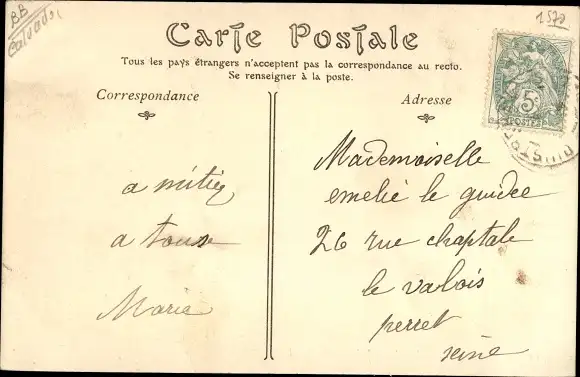 BB
Calvados
1570
Carte Postale
Tous les pays étrangers n'acceptent pas la correspondance au recto.
Se renseigner à la poste.
Correspondance
Adresse
5c
POSTES
a mitiez
a touse
Marie
Mademoiselle
emelié le guidee
26 rue chaptale
le valois
perret
seine